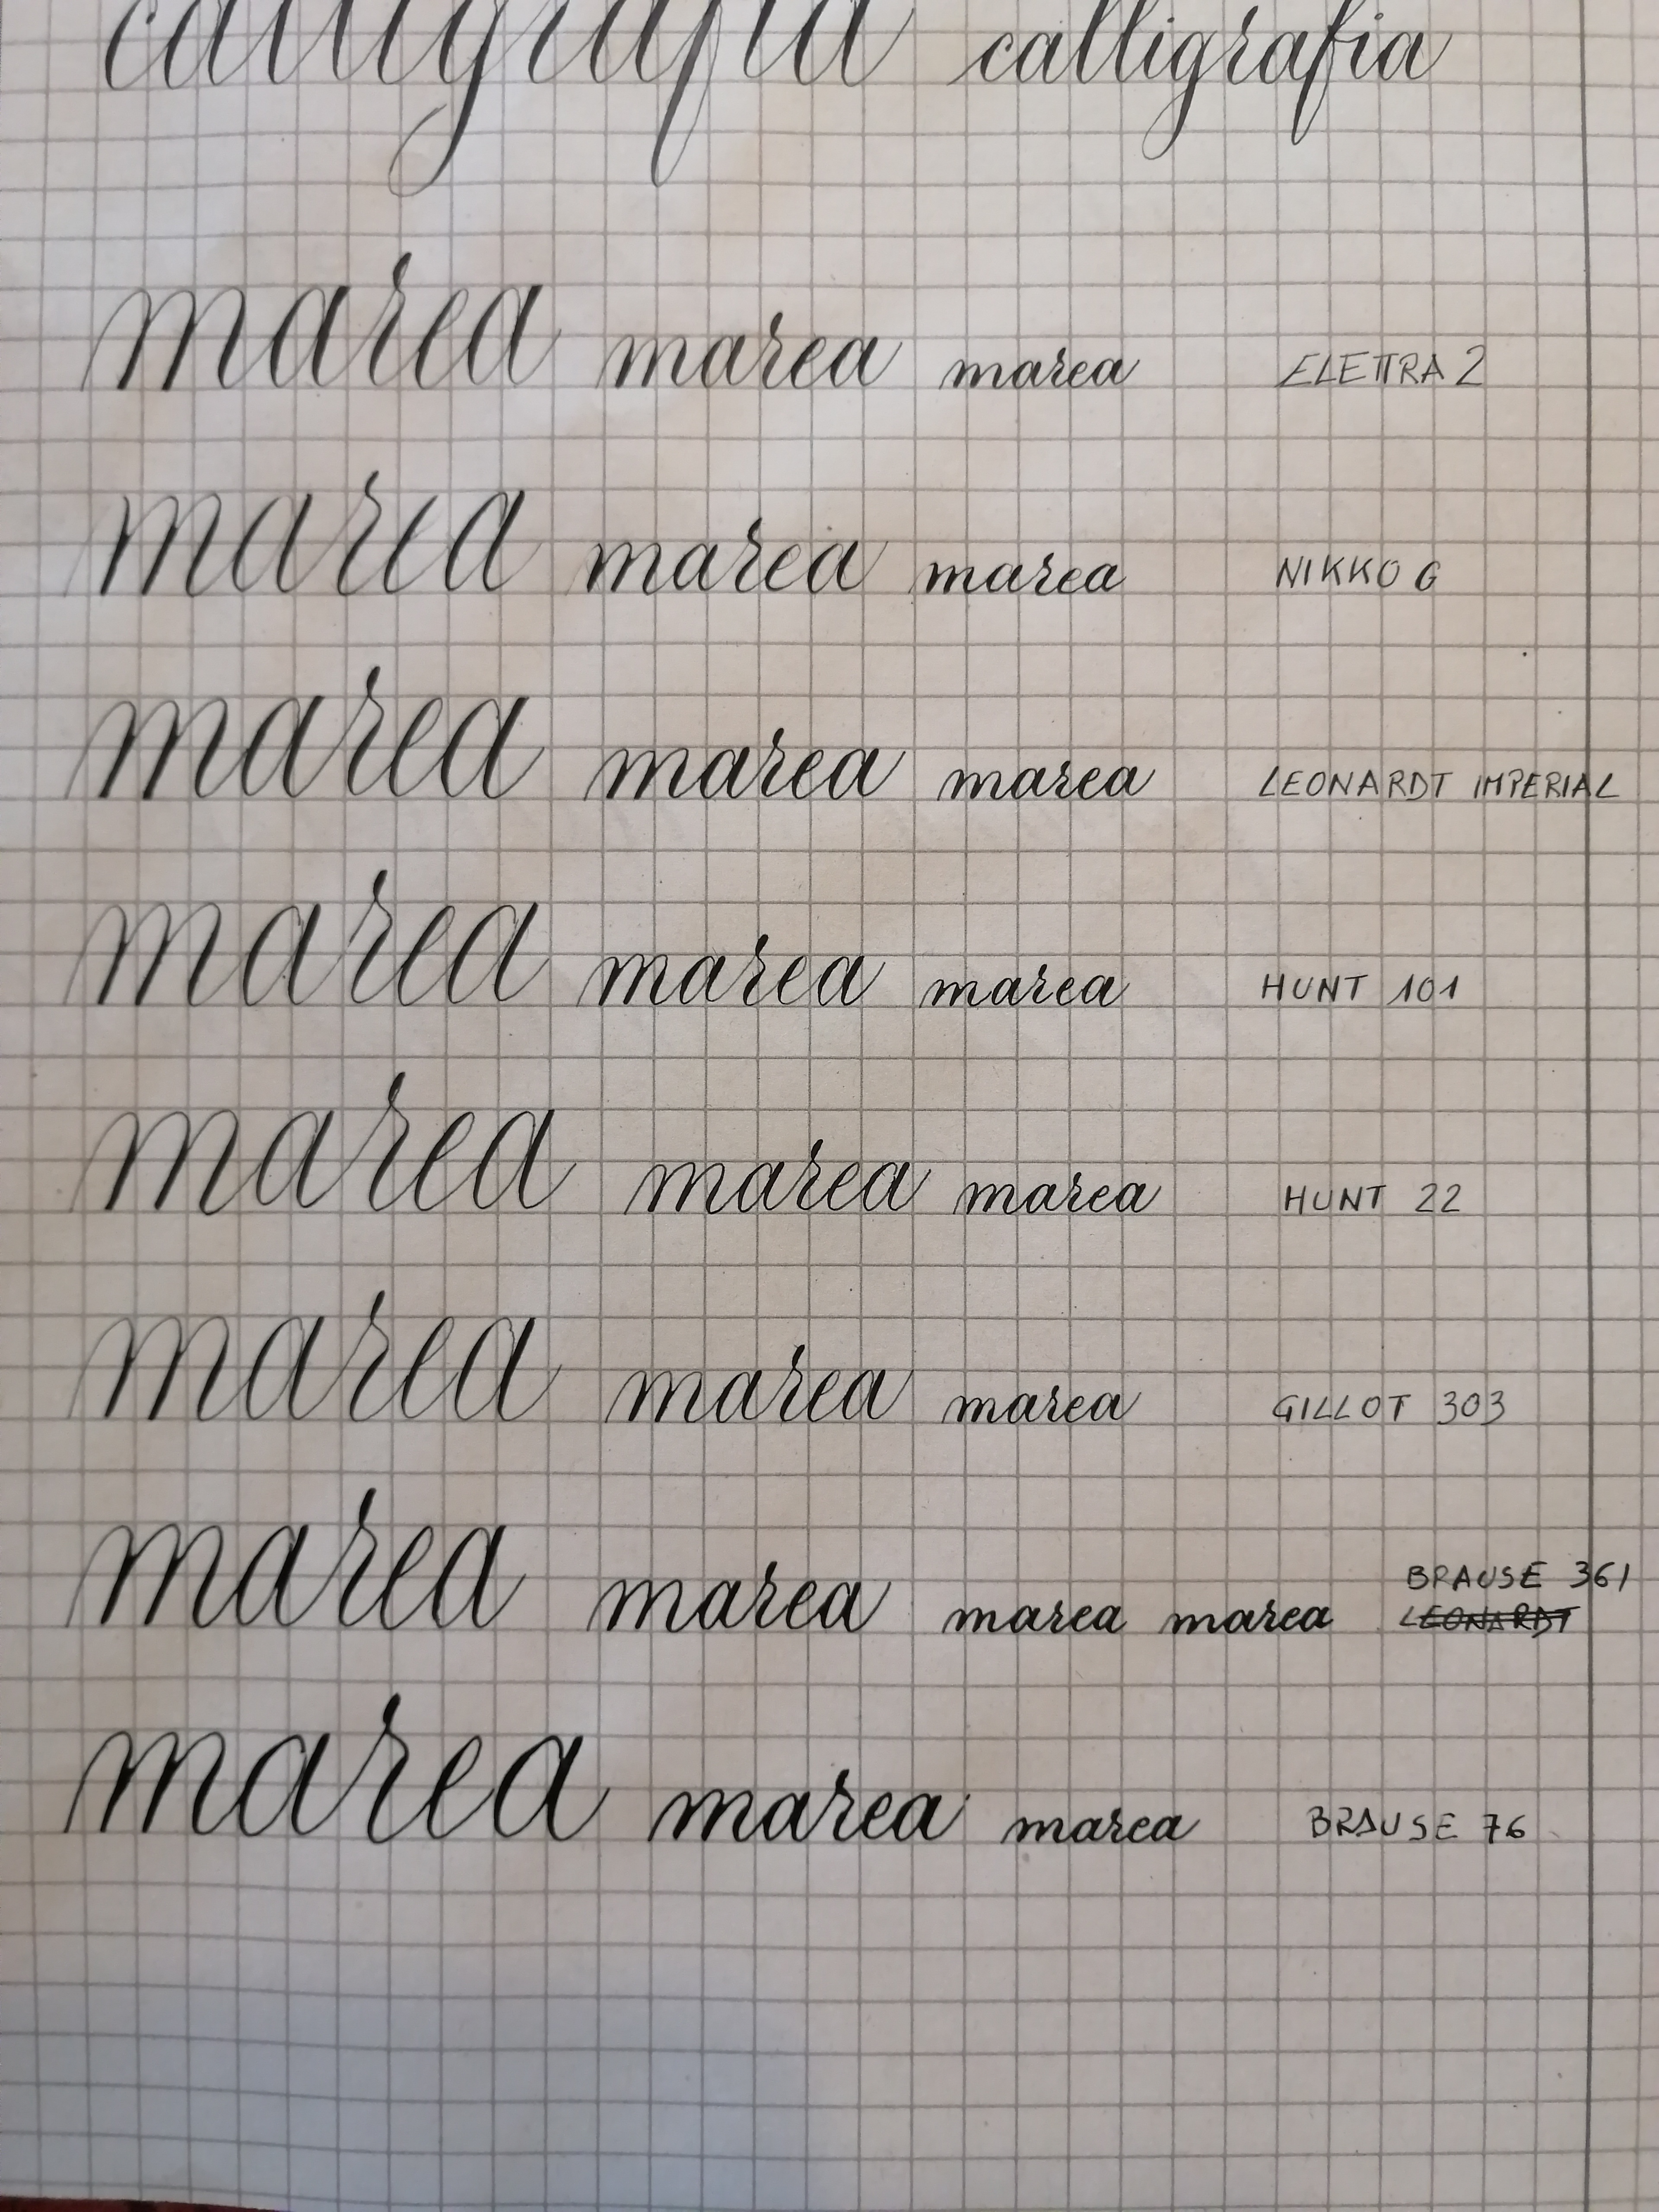 calligrafia calligrafia
marea marea marea ELETTRA 2
marea marea marea NIKKO G
marea marea marea LEONARDT IMPERIAL
marea marea marea HUNT 101
marea marea marea HUNT 22
marea marea marea GILLOT 303
BRAUSE 361
marea marea marea marea LEONARDT
marea marea marea BRAUSE 76